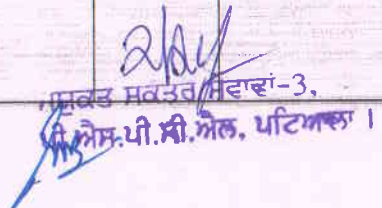 ਸਕੱਤਰ ਸੇਵਾਵਾਂ-3,
ਪੀ.ਐਸ.ਪੀ.ਸੀ.ਐਲ, ਪਟਿਆਲਾ ।